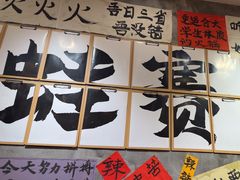 火火火
吾日三省
吾没错
更适合大
学生体质
的火锅
蛙赛
今天努力拼搏
辣